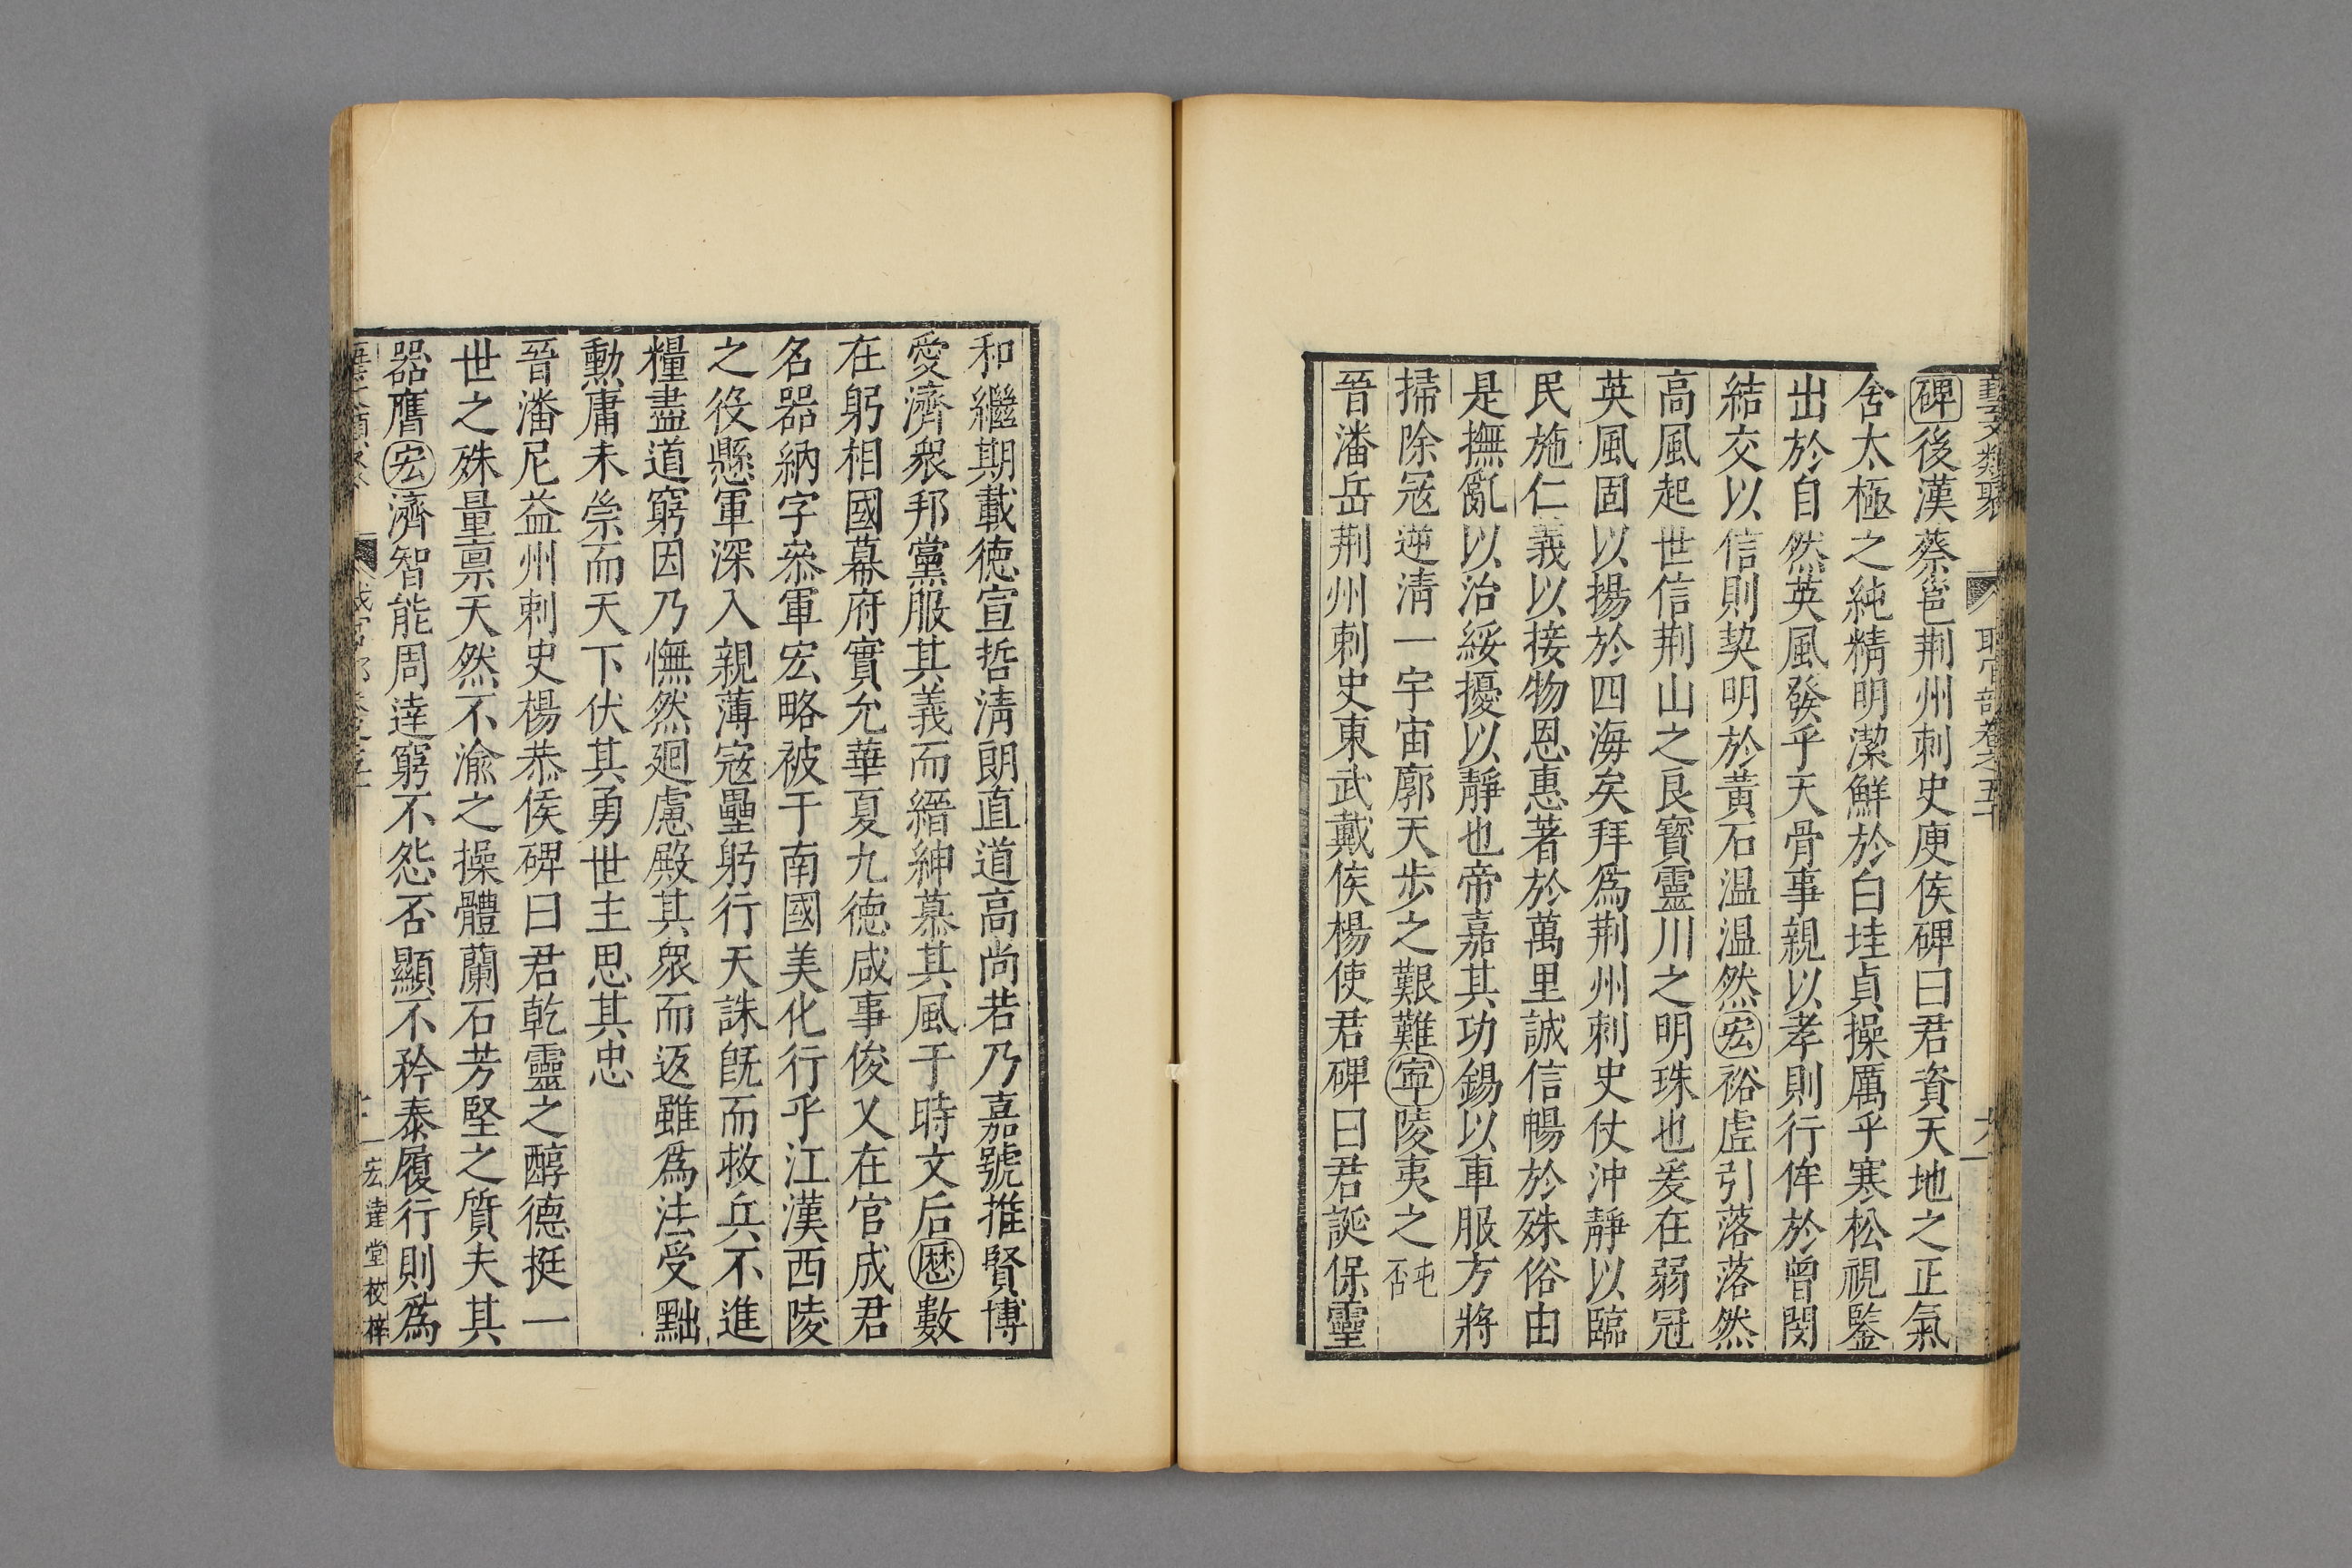 藝文類聚 職官部卷之五十
碑後漢蔡邕荆州刺史庾侯碑曰君資天地之正氣
含太極之純精明潔鮮於白珪貞操厲乎寒松視鑒
出於自然英風發乎天骨事親以孝則行侔於曾閔
結交以信則契明於黃石温温然宏裕虚引落落然
高風起世信荆山之良寶靈川之明珠也爰在弱冠
英風固以揚於四海矣拜爲荆州刺史仗沖靜以臨
民施仁義以接物恩惠著於萬里誠信暢於殊俗由
是撫亂以治綏擾以靜也帝嘉其功錫以車服方將
掃除宼逆清一宇宙廓天步之艱難寕陵夷之屯否
晉潘岳荆州刺史東武戴侯楊使君碑曰君誕保靈
和繼期載德宣哲淸朗直道高尚若乃嘉號推賢博
愛濟衆邦黨服其義而縉紳慕其風于時文后厯數
在躬相國幕府實允華夏九德咸事俊乂在官成君
名器納字叅軍宏略被于南國美化行乎江漢西陵
之役懸軍深入親薄寇壘躬行天誅旣而救兵不進
糧盡道窮因乃憮然廻慮殿其衆而返雖爲法受黜
勳庸未崇而天下伏其勇世主思其忠
晉潘尼益州刺史楊恭侯碑曰君乾靈之醇德挺一
世之殊量禀天然不渝之操體蘭石芳堅之質夫其
器膺宏濟智能周達窮不怨否顯不矜泰履行則爲
宏達堂校梓